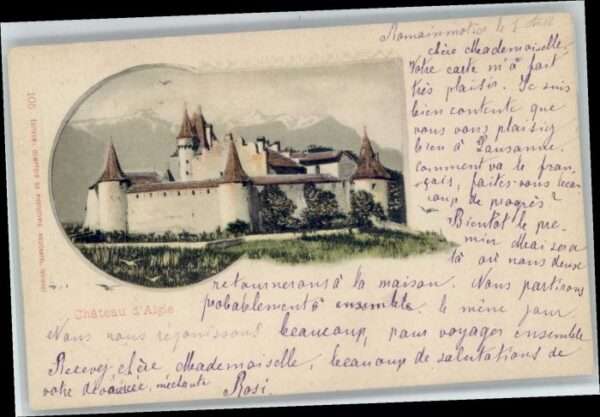 Romainmotier le 1
chère Mademoiselle,
Votre carte m'a fait
très plaisir. Je suis
bien contente que
vous vous plaisiez
bien à Lausanne.
comment va le fran-
çais, faites-vous beau
coup de progrès?
Bientôt le pre-
mier Mai sera
là où nous deux
retournerons à la maison. Nous partirons
probablements ensemble le même jour.
Nous nous réjouissons beaucoup, pour voyager ensemble
Recevez chère Mademoiselle, beaucoup de salutations de
votre dévouée, méchante Rosi.
Château d'Aigle
105